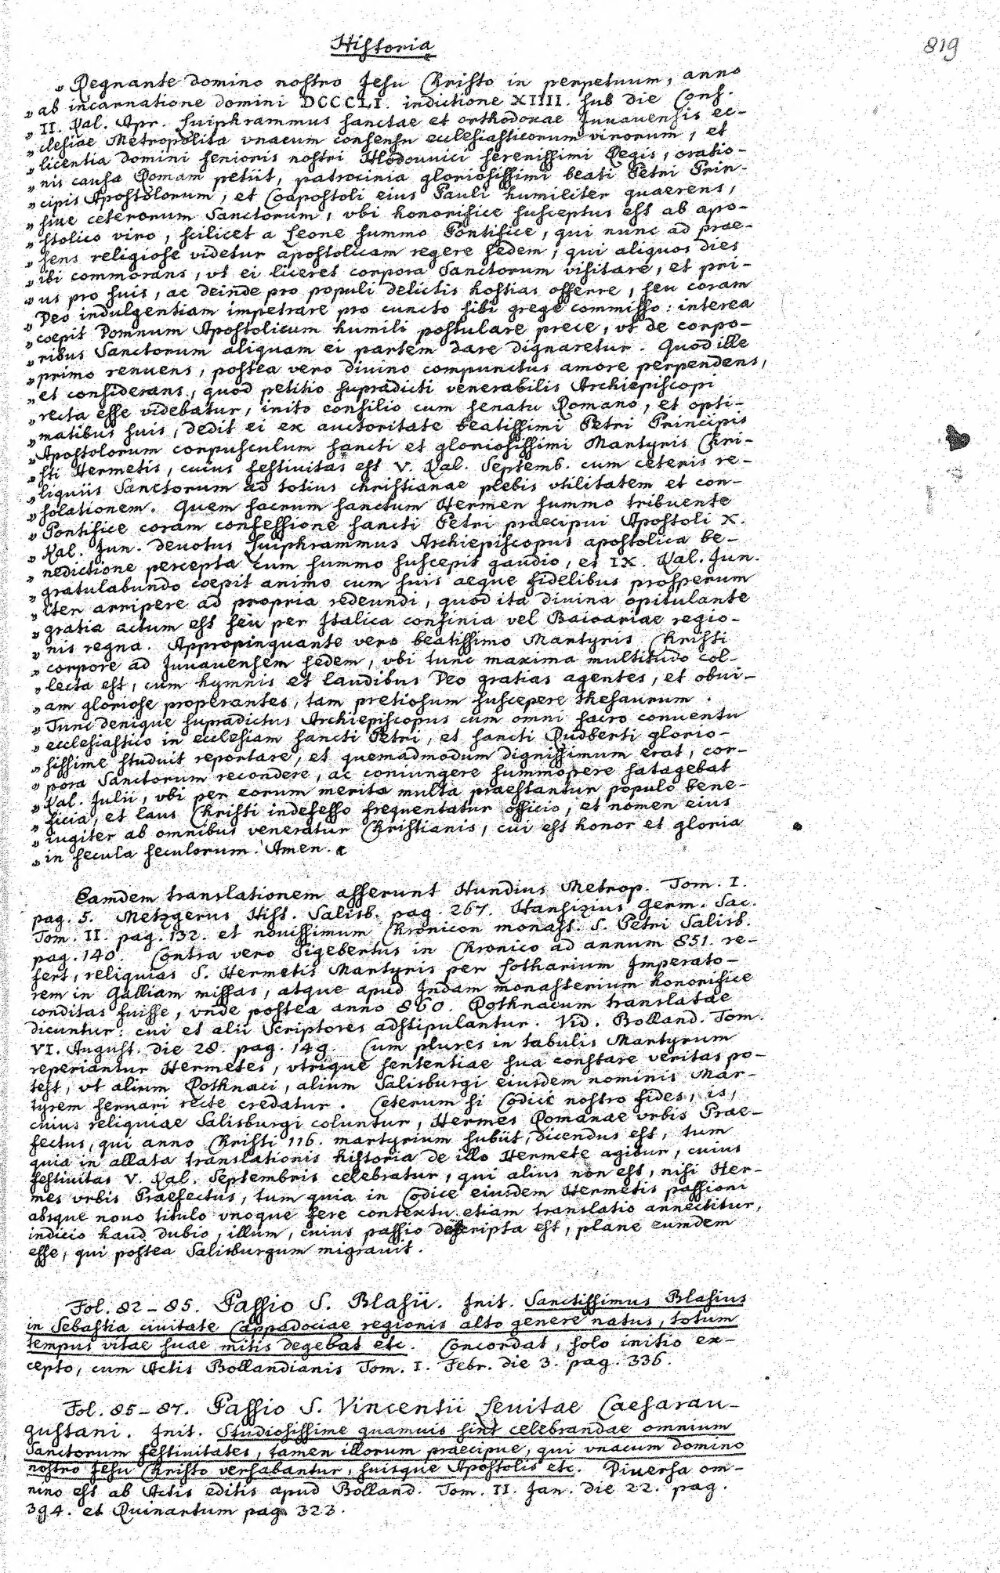 Historia
819
„Regnante domino nostro Jesu Christo in perpetuum, anno
„ab incarnatione domini DCCCLI. indictione XIIII. sub die Cons.
„II. Kal. Apr. Luiphrammus sanctae et orthodoxae Juuauensis ec-
„clesiae Metropolita vnacum consensu ecclesiasticorum virorum, et
„licentia domini senioris nostri Hlodouuici serenissimi Regis, oratio-
„nis causa Romam petiit, patrocinia gloriosissimi beati Petri Prin-
„cipis Apostolorum, et Coapostoli eius Pauli humiliter quaerens,
„siue ceterorum Sanctorum, vbi honorifice susceptus est ab apo-
„stolico viro, scilicet a Leone summo Pontifice, qui nunc ad prae-
„sens religiose videtur apostolicam regere sedem, qui aliquos dies
„ibi commorans, vt ei liceret corpora Sanctorum visitare, et pri-
„us pro suis, ac deinde pro populi delictis hostias offerre, seu coram
„Deo indulgentiam impetrare pro cuncto sibi grege commisso: interea
„coepit Domnum Apostolicum humili postulare prece, vt de corpo-
„ribus Sanctorum aliquam ei partem dare dignaretur. Quod ille
„primo renuens, postea vero diuino compunctus amore perpendens,
„et considerans, quod petitio supradicti venerabilis Archiepiscopi
„recta esse videbatur, inito consilio cum senatu Romano, et opti-
„matibus suis, dedit ei ex auctoritate beatissimi Petri Principis
„Apostolorum corpusculum sancti et gloriosissimi Martyris Chri-
„sti Hermetis, cuius festiuitas est V. Kal. Septemb. cum ceteris re-
„liquiis Sanctorum ad totius christianae plebis vtilitatem et con-
„solationem. Quem sacrum sanctum Hermen summo tribuente
„Pontifice coram confessione sancti Petri praecipui Apostoli X.
„Kal. Jun. deuotus Luiphrammus Archiepiscopus apostolica be-
„nedictione percepta cum summo suscepit gaudio, et IX. Kal. Jun.
„gratulabundo coepit animo cum suis aeque fidelibus prosperum
„iter arripere ad propria redeundi, quod ita diuina opitulante
„gratia actum est seu per Italica confinia vel Baioariae regio-
„nis regna. Appropinquante vero beatissimo Martyris Christi
„corpore ad Juuauensem sedem, vbi tunc maxima multitudo col-
„lecta est, cum hymnis et laudibus Deo gratias agentes, et obui-
„am gloriose properantes, tam pretiosum suscepere thesaurum.
„Tunc denique supradictus Archiepiscopus cum omni sacro conuentu
„ecclesiastico in ecclesiam sancti Petri, et sancti Rudberti glorio-
„sissime studuit reportare, et quemadmodum dignissimum erat, cor-
„pora Sanctorum recondere, ac coniungere summopere satagebat
„Kal. Julii, vbi per eorum merita multa praestantur populo bene-
„ficia, et laus Christi indefesso frequentatur officio, et nomen eius
„iugiter ab omnibus veneratur Christianis, cui est honor et gloria
„in secula seculorum. Amen.“
Eamdem translationem asserunt Hundius Metrop. Tom. I.
pag. 5. Metzgerus Hist. Salisb. pag. 267. Hansizius Germ. Sac.
Tom. II. pag. 132. et nouissimum Chronicon monast. S. Petri Salisb.
pag. 140. Contra vero Sigebertus in Chronico ad annum 851. re-
fert, reliquias S. Hermetis Martyris per Lotharium Imperato-
rem in Galliam missas, atque apud Indam monasterium honorifice
conditas fuisse, vnde postea anno 860. Rothnacum translatae
dicuntur: cui et alii Scriptores adstipulantur. Vid. Bolland. Tom.
VI. August. die 28. pag. 149. Cum plures in tabulis Martyrum
reperiantur Hermetes, vtrique sententiae sua constare veritas po-
test, vt alium Rothnaci, alium Salisburgi eiusdem nominis Mar-
tyrem seruari recte credatur. Ceterum si Codici nostro fides, is,
cuius reliquiae Salisburgi coluntur, Hermes Romanae vrbis Prae-
fectus, qui anno Christi 116. martyrium subiit, dicendus est, tum
quia in allata translationis historia de illo Hermete agitur, cuius
festiuitas V. Kal. Septembris celebratur, qui alius non est, nisi Her-
mes vrbis Praefectus, tum quia in Codice eiusdem Hermetis passioni
absque nouo titulo vnoque fere contextu etiam translatio annectitur,
indicio haud dubio, illum, cuius passio descripta est, plane eumdem
esse, qui postea Salisburgum migrauit.
Fol. 82–85. Passio S. Blasii. Init. Sanctissimus Blasius
in Sebastia ciuitate Cappadociae regionis alto genere natus, totum
tempus vitae suae mitis degebat etc. Concordat, solo initio ex-
cepto, cum Actis Bollandianis Tom. I. Febr. die 3. pag. 336.
Fol. 85–87. Passio S. Vincentii Leuitae Caesarau-
gustani. Init. Studiosissime quamuis sint celebrandae omnium
Sanctorum festiuitates, tamen illorum praecipue, qui vnacum domino
nostro Jesu Christo versabantur, suisque Apostolis etc. Diuersa om-
nino est ab Actis editis apud Bolland. Tom. II. Jan. die 22. pag.
394. et Ruinartum pag. 323.